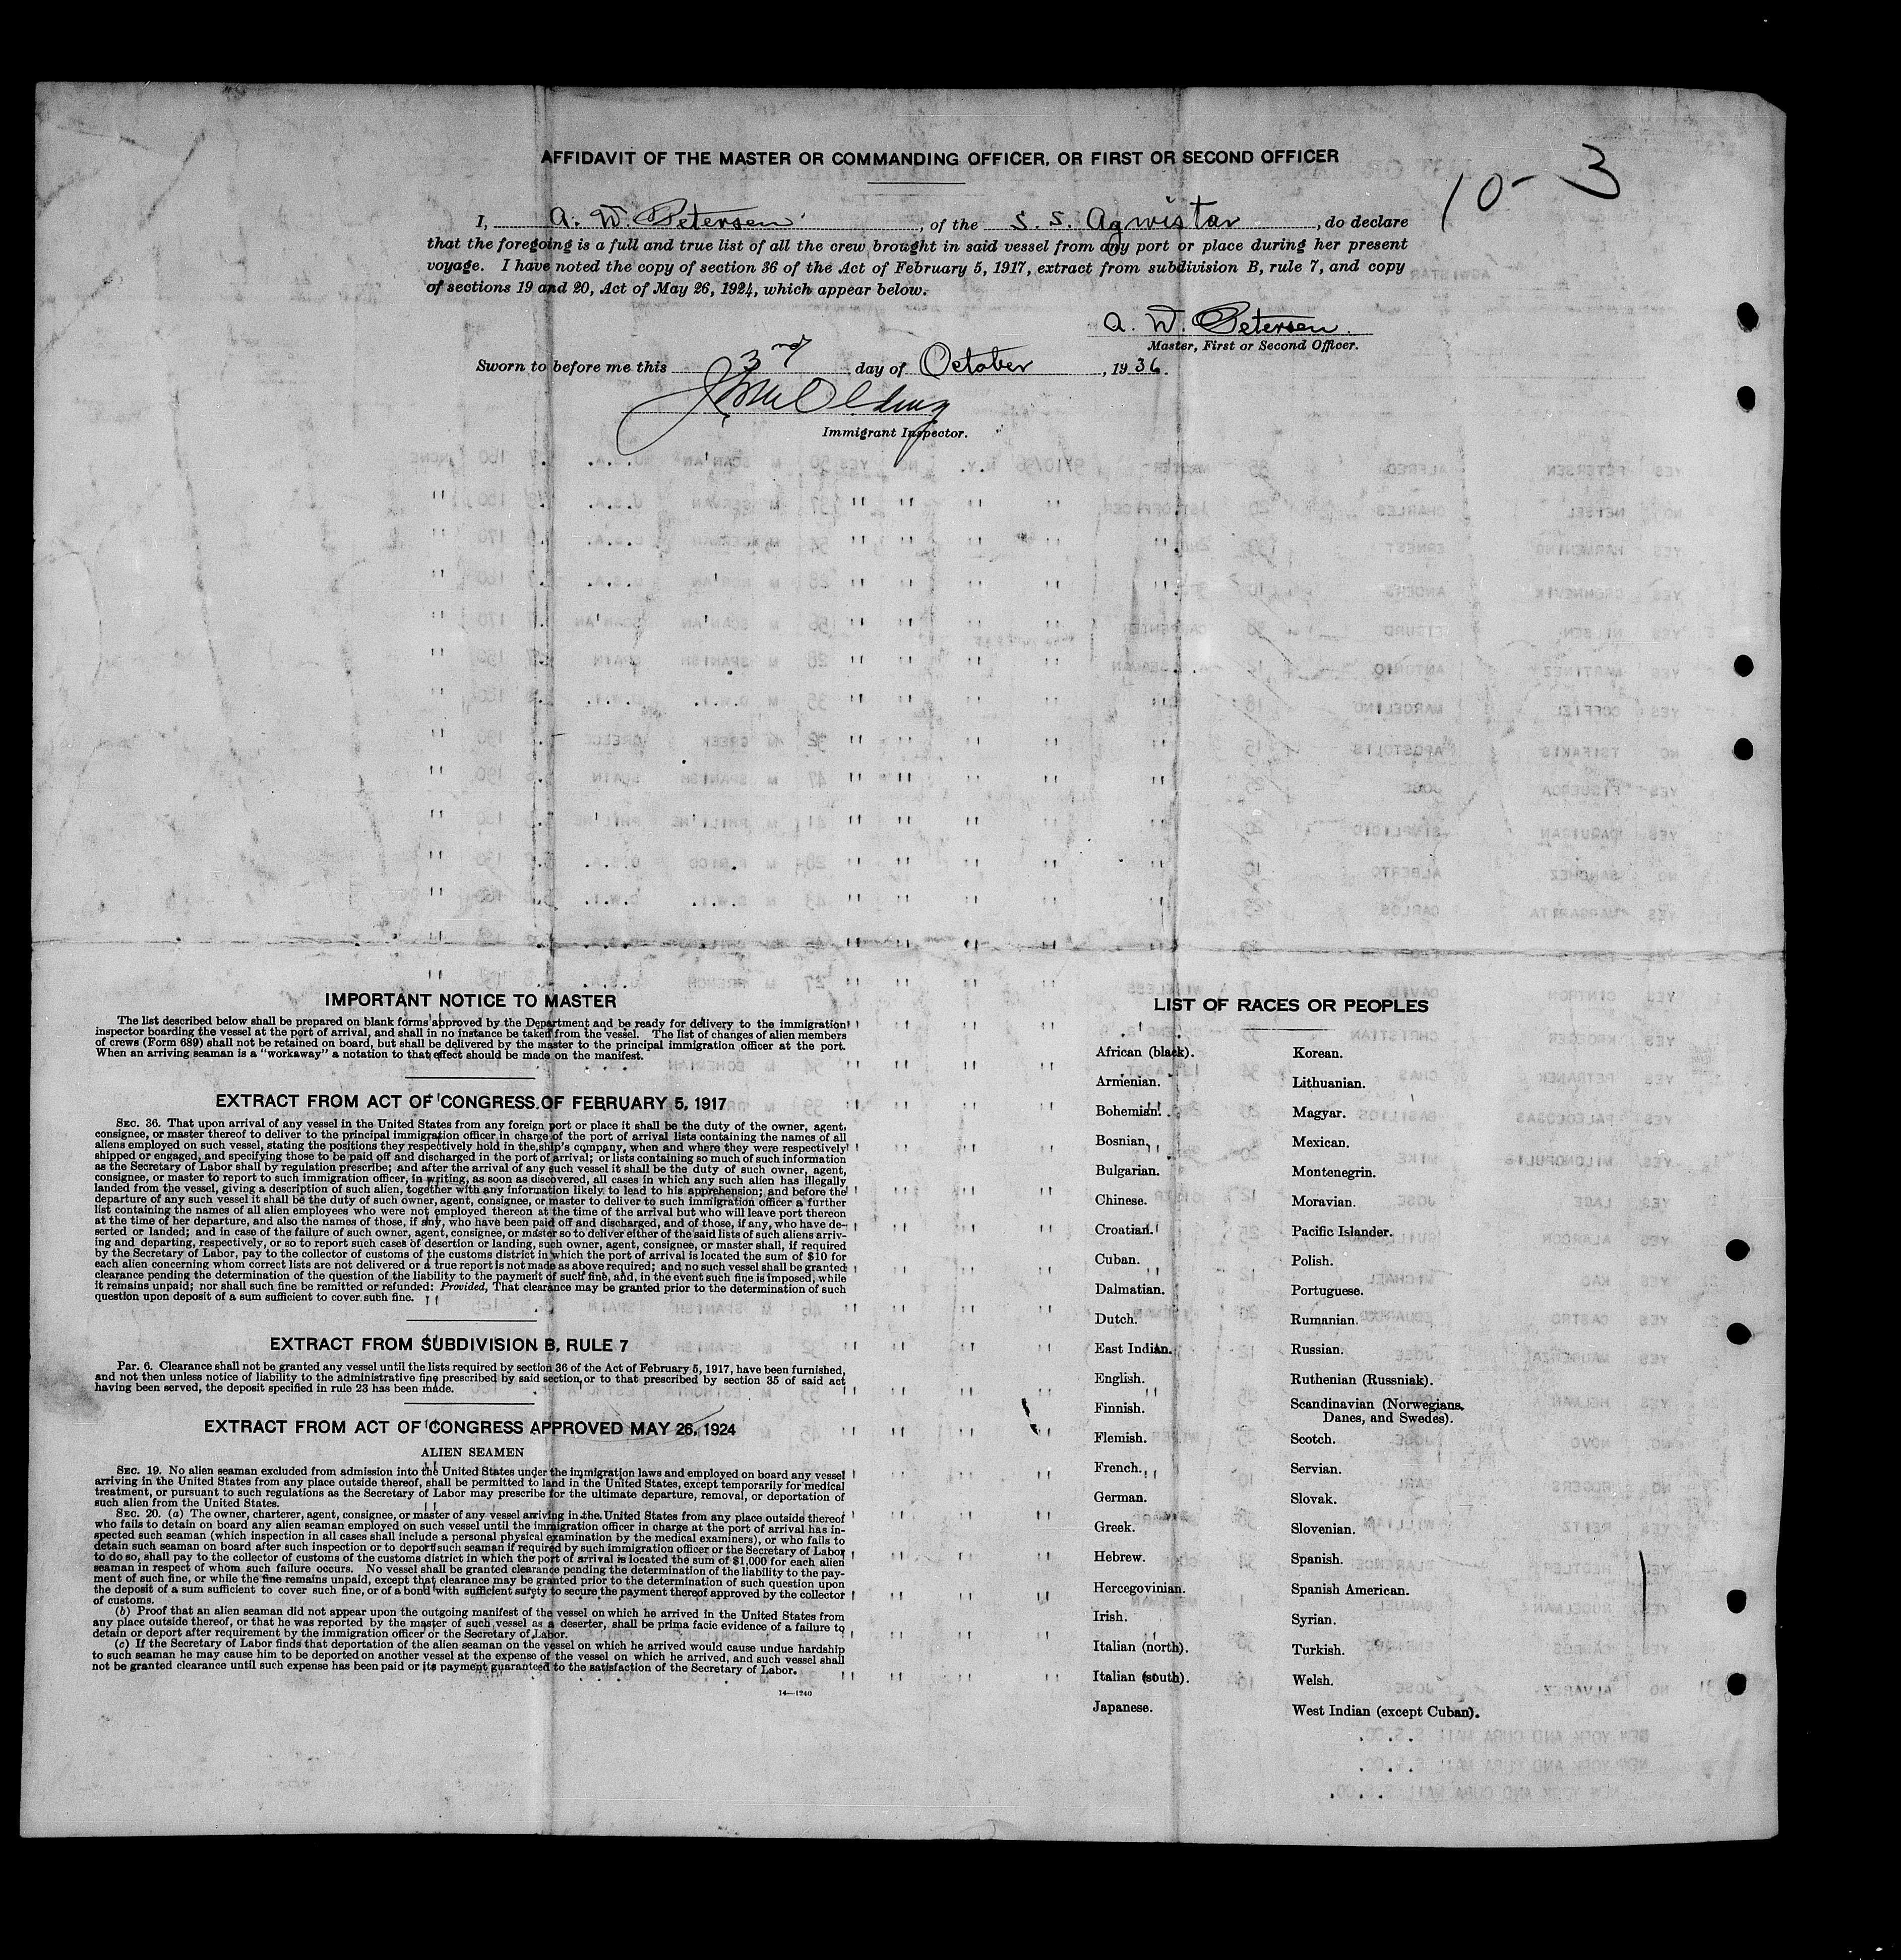 AFFIDAVIT OF THE MASTER OR COMMANDING OFFICER, OR FIRST OR SECOND OFFICER
10-3
I, A. W. Petersen, of the S. S. Agwistar, do declare
that the foregoing is a full and true list of all the crew brought in said vessel from any port or place during her present
voyage. I have noted the copy of section 36 of the Act of February 5, 1917, extract from subdivision B, rule 7, and copy
of sections 19 and 20, Act of May 26, 1924, which appear below.
A. W. Petersen
Master, First or Second Officer.
Sworn to before me this 3rd day of October, 1936.
Immigrant Inspector.
IMPORTANT NOTICE TO MASTER
The list described below shall be prepared on blank forms approved by the Department and be ready for delivery to the immigration
inspector boarding the vessel at the port of arrival, and shall in no instance be taken from the vessel. The list of changes of alien members
of crews (Form 689) shall not be retained on board, but shall be delivered by the master to the principal immigration officer at the port.
When an arriving seaman is a "workaway" a notation to that effect should be made on the manifest.
EXTRACT FROM ACT OF CONGRESS OF FEBRUARY 5, 1917
SEC. 36. That upon arrival of any vessel in the United States from any foreign port or place it shall be the duty of the owner, agent,
consignee, or master thereof to deliver to the principal immigration officer in charge of the port of arrival lists containing the names of all
aliens employed on such vessel, stating the positions they respectively hold in the ship's company, when and where they were respectively
shipped or engaged, and specifying those to be paid off and discharged in the port of arrival; or lists containing so much of such information
as the Secretary of Labor shall by regulation prescribe; and after the arrival of any such vessel it shall be the duty of such owner, agent,
consignee, or master to report to such immigration officer, in writing, as soon as discovered, all cases in which any such alien has illegally
landed from the vessel, giving a description of such alien, together with any information likely to lead to his apprehension; and before the
departure of any such vessel it shall be the duty of such owner, agent, consignee, or master to deliver to such immigration officer a further
list containing the names of all alien employees who were not employed thereon at the time of the arrival but who will leave port thereon
at the time of her departure, and also the names of those, if any, who have been paid off and discharged, and of those, if any, who have de-
serted or landed; and in case of the failure of such owner, agent, consignee, or master so to deliver either of the said lists of such aliens arriv-
ing and departing, respectively, or so to report such cases of desertion or landing, such owner, agent, consignee, or master shall, if required
by the Secretary of Labor, pay to the collector of customs of the customs district in which the port of arrival is located the sum of $10 for
each alien concerning whom correct lists are not delivered or a true report is not made as above required; and no such vessel shall be granted
clearance pending the determination of the question of the liability to the payment of such fine, and, in the event such fine is imposed, while
it remains unpaid; nor shall such fine be remitted or refunded: Provided, That clearance may be granted prior to the determination of such
question upon deposit of a sum sufficient to cover such fine.
EXTRACT FROM SUBDIVISION B, RULE 7
PAR. 6. Clearance shall not be granted any vessel until the lists required by section 36 of the Act of February 5, 1917, have been furnished,
and not then unless notice of liability to the administrative fine prescribed by said section, or to that prescribed by section 35 of said act
having been served, the deposit specified in rule 23 has been made.
EXTRACT FROM ACT OF CONGRESS APPROVED MAY 26, 1924
ALIEN SEAMEN
SEC. 19. No alien seaman excluded from admission into the United States under the immigration laws and employed on board any vessel
arriving in the United States from any place outside thereof, shall be permitted to land in the United States, except temporarily for medical
treatment, or pursuant to such regulations as the Secretary of Labor may prescribe for the ultimate departure, removal, or deportation of
such alien from the United States.
SEC. 20. (a) The owner, charterer, agent, consignee, or master of any vessel arriving in the United States from any place outside thereof
who fails to detain on board any alien seaman employed on such vessel until the immigration officer in charge at the port of arrival has in-
spected such seaman (which inspection in all cases shall include a personal physical examination by the medical examiners), or who fails to
detain such seaman on board after such inspection or to deport such seaman if required by such immigration officer or the Secretary of Labor
to do so, shall pay to the collector of customs of the customs district in which the port of arrival is located the sum of $1,000 for each alien
seaman in respect of whom such failure occurs. No vessel shall be granted clearance pending the determination of the liability to the pay-
ment of such fine, or while the fine remains unpaid, except that clearance may be granted prior to the determination of such question upon
the deposit of a sum sufficient to cover such fine, or of a bond with sufficient surety to secure the payment thereof approved by the collector
of customs.
(b) Proof that an alien seaman did not appear upon the outgoing manifest of the vessel on which he arrived in the United States from
any place outside thereof, or that he was reported by the master of such vessel as a deserter, shall be prima facie evidence of a failure to
detain or deport after requirement by the immigration officer or the Secretary of Labor.
(c) If the Secretary of Labor finds that deportation of the alien seaman on the vessel on which he arrived would cause undue hardship
to such seaman he may cause him to be deported on another vessel at the expense of the vessel on which he arrived, and such vessel shall
not be granted clearance until such expense has been paid or its payment guaranteed to the satisfaction of the Secretary of Labor.
14—1240
LIST OF RACES OR PEOPLES
African (black).
Armenian.
Bohemian.
Bosnian.
Bulgarian.
Chinese.
Croatian.
Cuban.
Dalmatian.
Dutch.
East Indian.
English.
Finnish.
Flemish.
French.
German.
Greek.
Hebrew.
Hercegovinian.
Irish.
Italian (north).
Italian (south).
Japanese.
Korean.
Lithuanian.
Magyar.
Mexican.
Montenegrin.
Moravian.
Pacific Islander.
Polish.
Portuguese.
Rumanian.
Russian.
Ruthenian (Russniak).
Scandinavian (Norwegians,
Danes, and Swedes).
Scotch.
Servian.
Slovak.
Slovenian.
Spanish.
Spanish American.
Syrian.
Turkish.
Welsh.
West Indian (except Cuban).